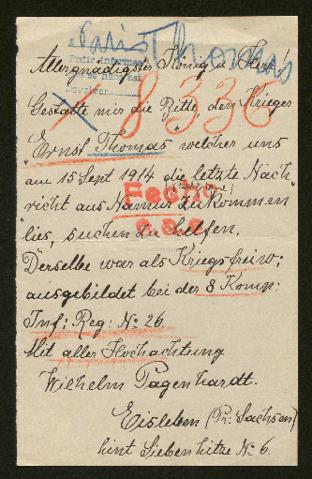 Paris Thomas
Allergnädigster König u. Herr!
8336
Gestatte mir die Bitte den Krieger
"Ernst Thomas" welcher uns
am 15 Sept 1914 die letzte Nach
richt aus Namur zukommen
lies, suchen zu helfen.
Derselbe war als Kriegsfreiw:
ausgebildet bei der 8 Komp:
Inf: Reg: No 26.
Mit aller Hochachtung
Wilhelm Pagenhardt.
Eisleben (Pr: Sachsen)
hint Siebenhitze No 6.